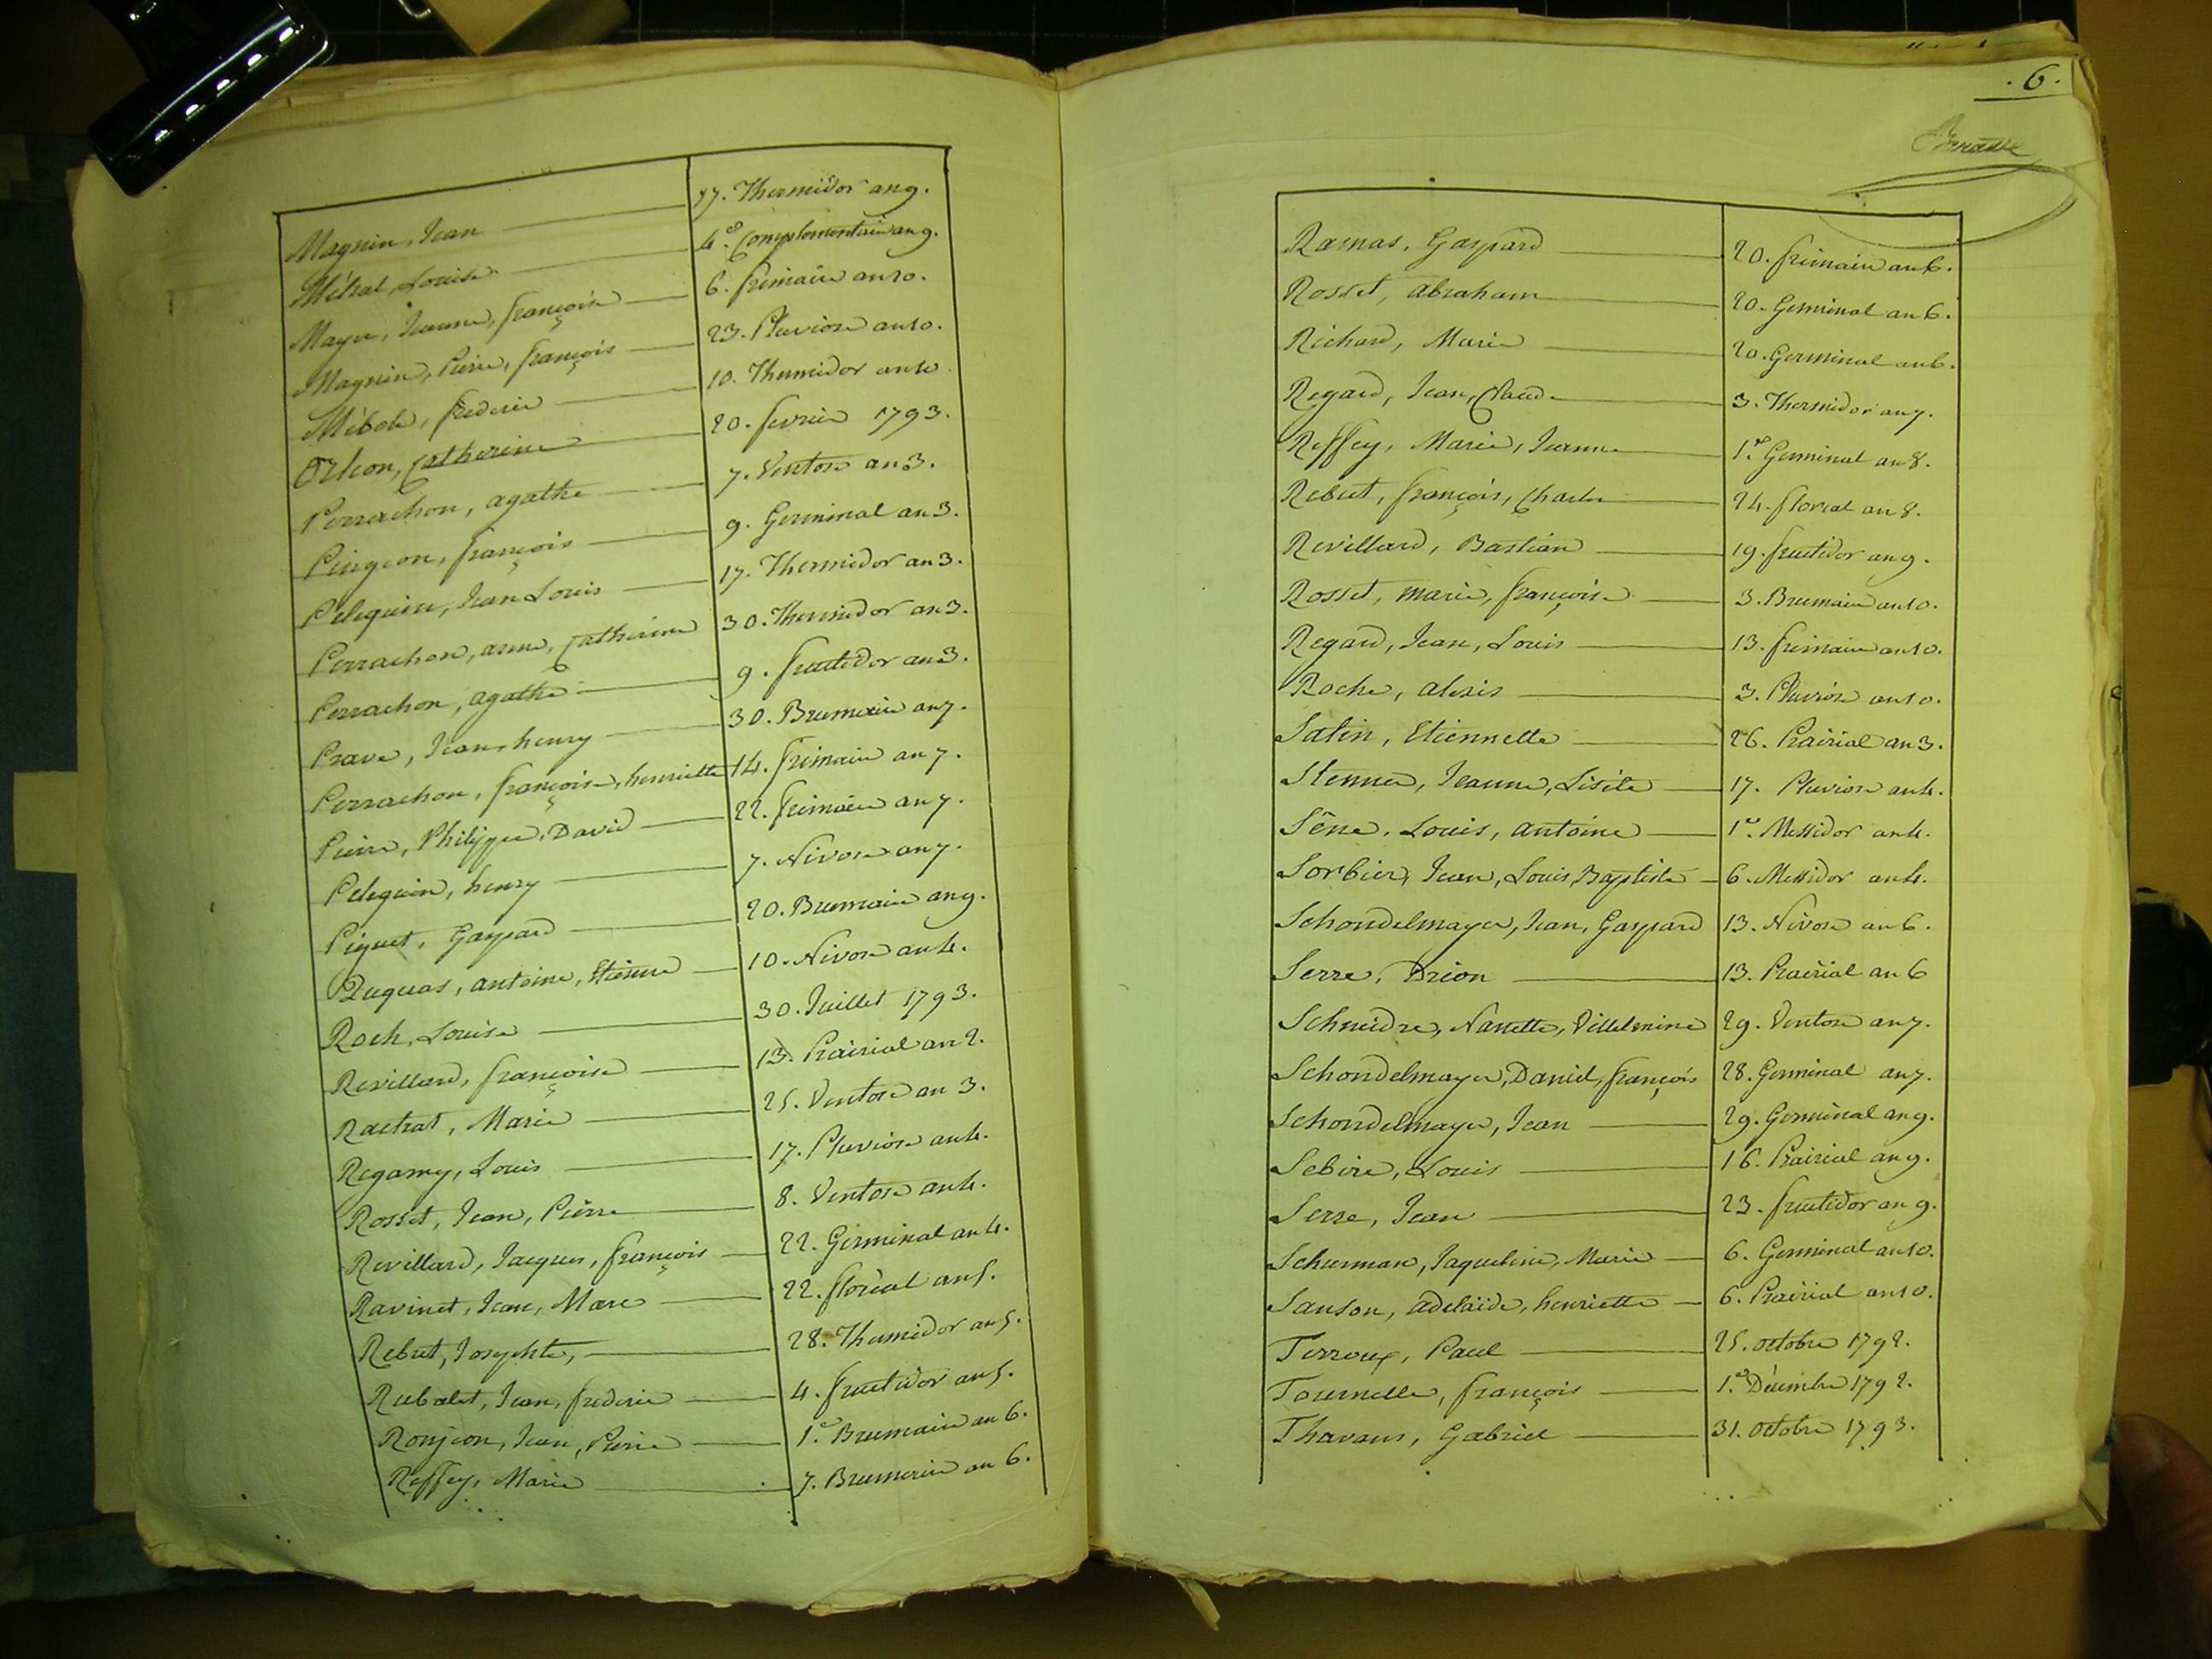 Magnin, Jean 17. Thermidor an 9.
Métral, Louise 4.e Complementaire an 9.
Mayer, Jeanne, françoise 6. frimaire an 10.
Magnin, Pierre, françois 23. Pluviose an 10.
Mébole, frederic 10. Thermidor an 10
Orleon, Catherine 20. fevrier 1793.
Perrachon, agathe 7. Ventose an 3.
Peirgeon, françois 9. Germinal an 3.
Peleguin, Jean Louis 17. Thermidor an 3.
Perrachon, anne, Catherine 30. Thermidor an 3.
Perrachon, agathe 9. fructidor an 3.
Prave, Jean, henry 30. Brumaire an 7.
Perrachon, françoise, henriette 14. frimaire an 7.
Pierre, Philippe, David 22. frimaire an 7.
Peleguin, henry 7. Nivose an 7.
Piguet, Gaspard 20. Brumaire an 9.
Duguas, antoine, Etienne 10. Nivose an 4.
Roch, Louise 30. Juillet 1793.
Revillard, françoise 13. Prairial an 2.
Rachat, Marie 25. Ventose an 3.
Regamy, Louis 17. Pluviose an 4.
Rosset, Jean, Pierre 8. Ventose an 4.
Revillard, Jacques, françois 22. Germinal an 4.
Ravinet, Jean, Marc 22. floréal an 5.
Rebut, Josephte, 28. Thermidor an 5.
Rubalet, Jean, frederic 4. fructidor an 5.
Ronjeon, Jean, Pierre 1.er Brumaire an 6.
Reffey, Marie 7. Brumaire an 6.
. 6 .
Ramas, Gaspard 20. frimaire an 6.
Rosset, abraham 20. Germinal an 6.
Richard, Marie 20. Germinal an 6.
Regard, Jean, Claude 3. Thermidor an 7.
Reffey, Marie, Jeanne 1.er Germinal an 8.
Rebut, françois, Charles 24. floreal an 8.
Revillard, Bastian 19. fructidor an 9.
Rosset, marie, françoise 3. Brumaire an 10.
Regard, Jean, Louis 13. frimaire an 10.
Roche, alexis 3. Pluviose an 10.
Satin, Etiennette 26. Prairial an 3.
Stenner, Jeanne, Lisite 17. Pluviose an 4.
Sêne, Louis, antoine 1.er Messidor an 4.
Sorbier, Jean, Louis, Baptiste 6. Messidor an 4.
Schondelmayer, Jean, Gaspard 13. Nivose an 6.
Serre, Drion 13. Prairial an 6
Schneidre, Nanette, Villelmine 29. Ventose an 7.
Schondelmayer, Daniel, françois 28. Germinal an 7.
Schondelmayer, Jean 29. Germinal an 9.
Sebire, Louis 16. Prairial an 9.
Serre, Jean 23. fructidor an 9.
Schurman, Jaqueline, Marie 6. Germinal an 10.
Sanson, adelaïde, henriette 6. Prairial an 10.
Terroux, Paul 25. octobre 1792.
Tournelle, françois 1.er Décembre 1792.
Thavans, Gabriel 31. octobre 1793.